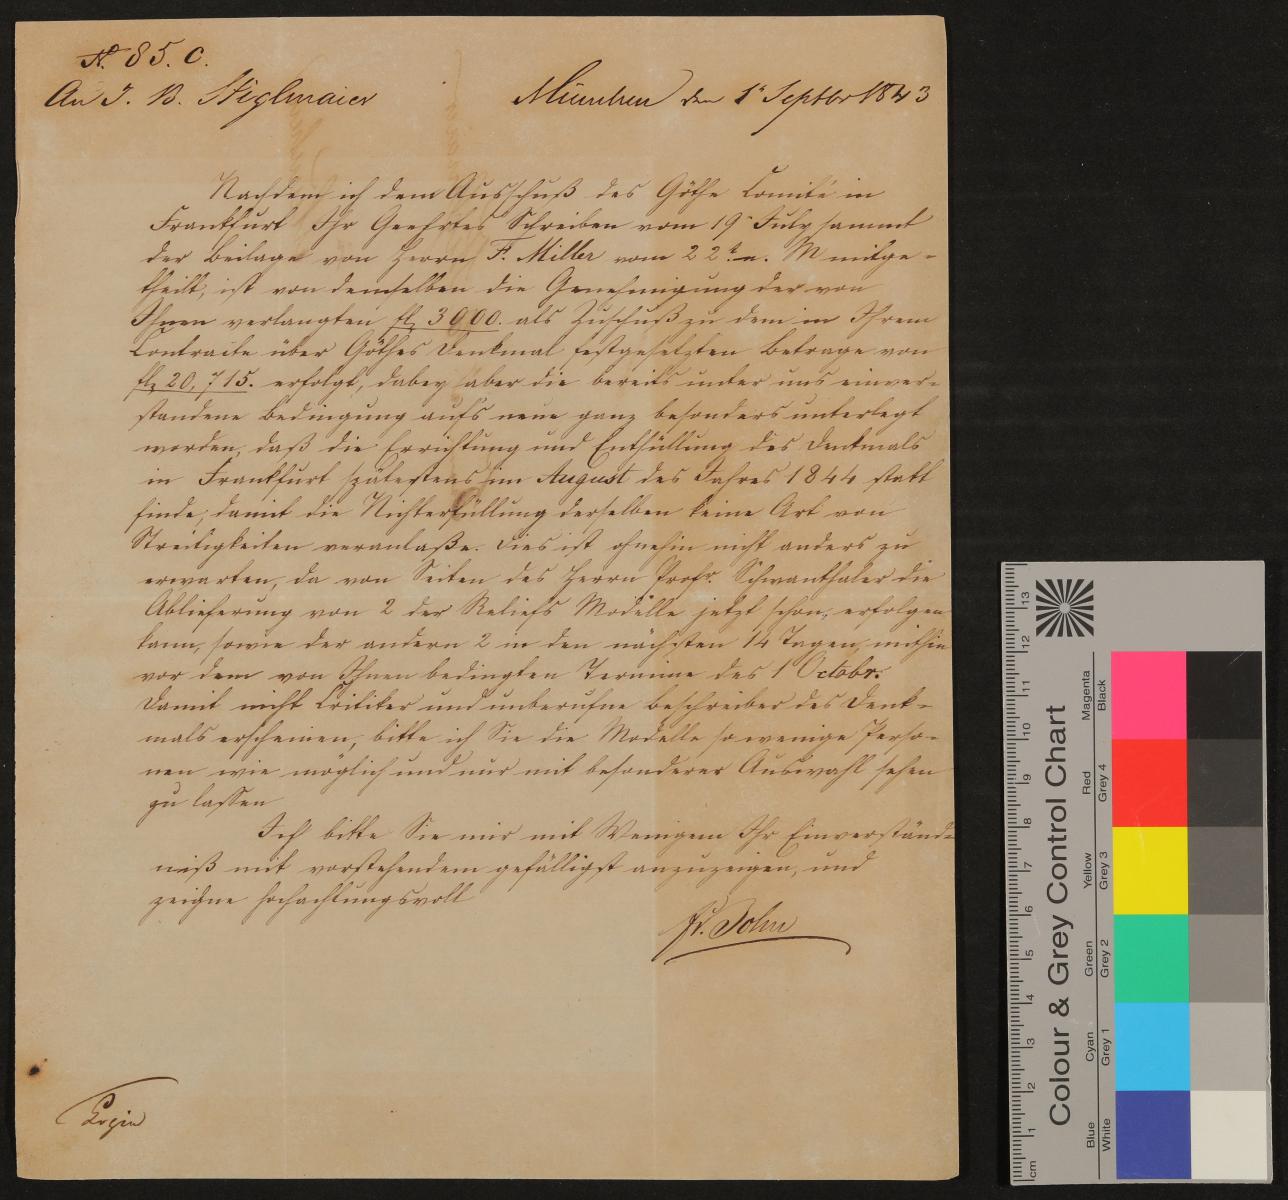 N. 85. C.
An J. B. Stiglmaier München den 1t Septbr 1843
Nachdem ich dem Ausschuß des Göthe Comité in
Frankfurt Ihr Geehrtes Schreiben vom 19t July sammt
der Beilage von Herrn F. Miller vom 22t n. M mitge-
theilt, ist von demselben die Genehmigung der von
Ihnen verlangten fl 3000. als Zuschuß zu dem in Ihrem
Contracte über Göthes Denkmal festgesetzten Betrage von
fl 20,715. erfolgt, dabey aber die bereits unter uns einver-
standene Bedingung aufs neue ganz besonders unterlegt
worden, daß die Errichtung und Enthüllung des Denkmals
in Frankfurt spätestens im August des Jahres 1844 statt
finde, damit die Nichterfüllung derselben keine Art von
Streitigkeiten veranlaße. Dies ist ohnehin nicht anders zu
erwarten, da von Seiten des Herrn Profr. Schwanthaler die
Ablieferung von 2 der Reliefs Modelle jetzt schon, erfolgen
kann, sowie der andern 2 in den nächsten 14 Tagen, mithin
vor dem von Ihnen bedingten Termine des 1 Octobr.
Damit nicht Critiker und unberufne Beschreiber des Denk-
mals erscheinen, bitte ich Sie die Modelle so wenige Perso-
nen wie möglich und nur mit besonderer Auswahl sehen
zu lassen
Ich bitte Sie mir mit Wenigem Ihr Einverständ-
niß mit vorstehendem gefälligst anzuzeigen, und
zeichne hochachtungsvoll
Fr. John
Copia
Colour & Grey Control Chart
Blue Cyan Green Yellow Red Magenta
White Grey 1 Grey 2 Grey 3 Grey 4 Black
cm 1 2 3 4 5 6 7 8 9 10 11 12 13